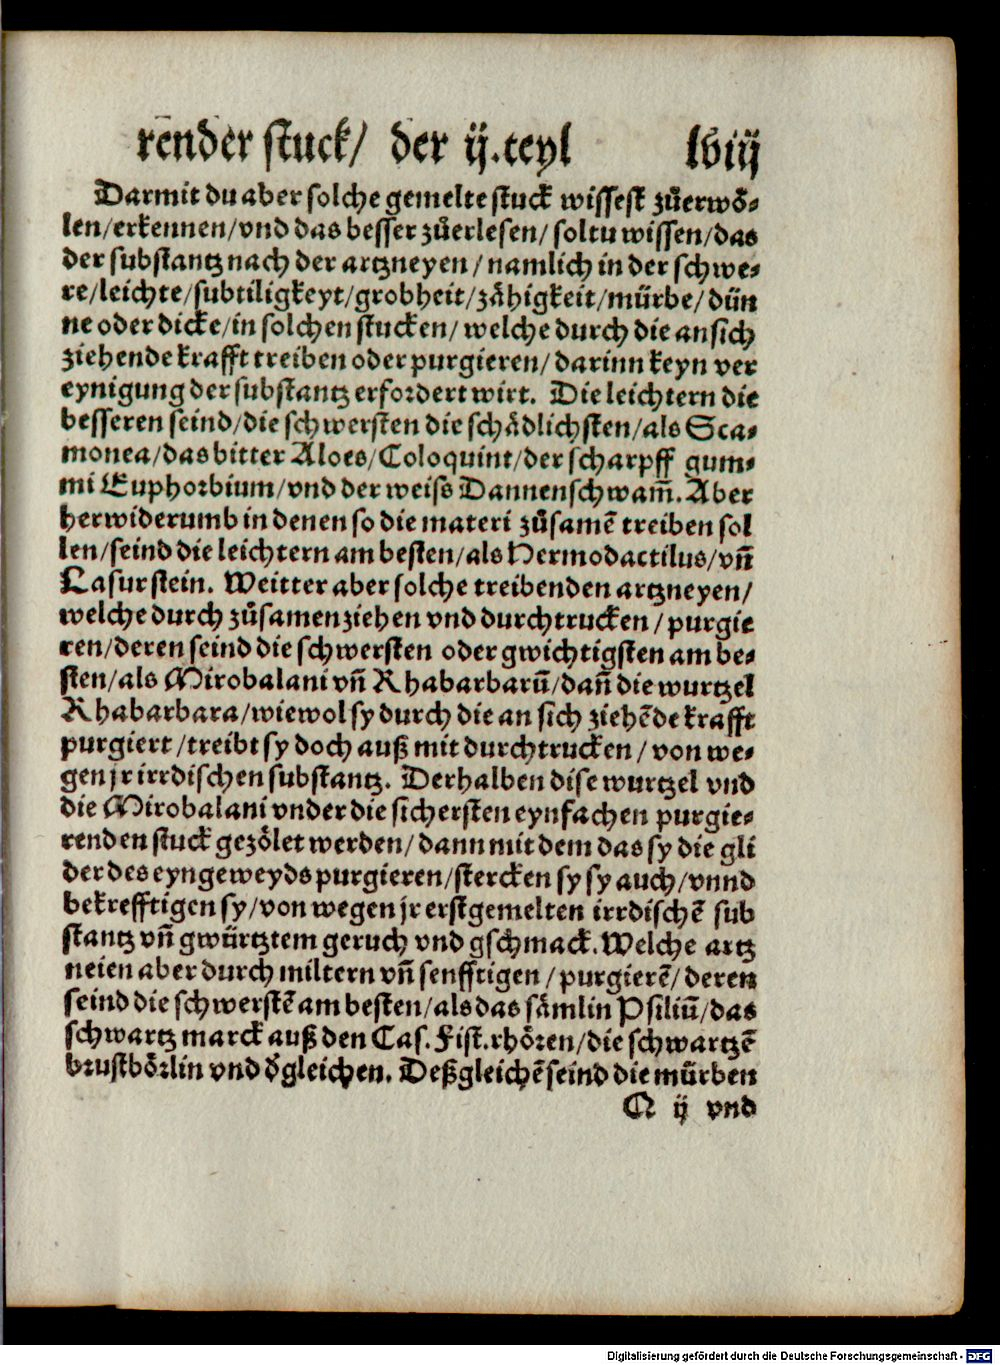 render stuck/ der ij.teyl lviij
Darmit du aber solche gemelte stuck wissest zůerwö-
len/erkennen/vnd das besser zůerlesen/ soltu wissen/das
der substantz nach der artzneyen/namlich in der schwe-
re/leichte/subtiligkeyt/grobheit/zähigkeit/mürbe/dün
ne oder dicke/in solchen stucken/welche durch die an sich
ziehende krafft treiben oder purgieren/darinn keyn ver
eynigung der substantz erfordert wirt. Die leichtern die
besseren seind/die schwersten die schädlichsten/als Sca-
monea/das bitter Aloes/Coloquint/der scharpff gum-
mi Euphorbium/vnd der weiss Dannenschwam̃. Aber
herwiderumb in denen so die materi zůsamẽ treiben sol
len/seind die leichtern am besten/als Hermodactilus/vñ
Lasurstein. Weitter aber solche treibenden artzneyen/
welche durch zůsamenziehen vnd durchtrucken/purgie
ren/deren seind die schwersten oder gwichtigsten am be-
sten/als Mirobalani vñ Rhabarbarũ/dañ die wurtzel
Rhabarbara/wiewol sy durch die an sich ziehẽde krafft
purgiert/treibt sy doch auß mit durchtrucken/von we-
gen jr irrdischen substantz. Derhalben dise wurtzel vnd
die Mirobalani vnder die sichersten eynfachen purgie-
renden stuck gezölet werden/dann mit dem das sy die gli
der des eyngeweyds purgieren/stercken sy sy auch/vnnd
bekrefftigen sy/von wegen jr erstgemelten irrdischẽ sub
stantz vñ gwürtztem geruch vnd gschmack. Welche artz
neien aber durch miltern vñ senfftigen/purgierẽ/deren
seind die schwerstẽ am besten/als das sämlin Psiliũ/das
schwartz marck auß den Cas. Fist. rhören/die schwartzẽ
brustbörlin vnd d̕gleichen. Deßgleichẽ seind die mürben
Q ij vnd
Digitalisierung gefördert durch die Deutsche Forschungsgemeinschaft - DFG